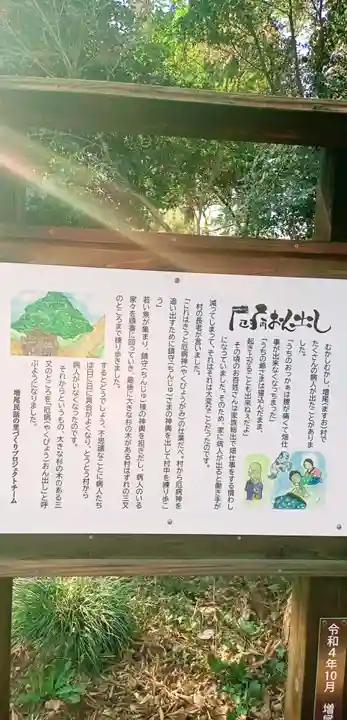 厄病おん出し
むかしむかし、増尾(ますお)村で
たくさんの病人が出たことがありま
した。
「うちのおっかぁは腰が痛くて畑仕
事が出来なくなっちまった」
「うちの爺さまは寝込んだまま、
起き上がることも出来ねぇだよ」
その頃のお百姓さんは家族総出で畑仕事をする慣わし
になっていました。そのため、家に病人が出ると働き手が
減ってしまって、それはそれは大変なことだったのです。
村の長老が言いました。
「これはきっと厄病神(やくびょうがみ)の仕業だべ。村から厄病神を
追い出すために鎮守(ちんじゅ)さまの神輿を出して村中を練り歩こ
う」
若い衆が集まり、鎮守(ちんじゅ)様の神輿を担ぎだし、病人のいる
家々を順番に回っていき、最後に大きな杉の木がある村はずれの三叉
のところまで練り歩きました。
するとどうでしょう、不思議なことに病人たち
は日に日に具合がよくなり、とうとう村から
病人がいなくなったのです。
それからというもの、大きな杉の木のある三
又のところを、厄病(やくびょう)おん出しと呼
ぶようになりました。
増尾民話の里づくりプロジェクトチーム
令和4年10月 増尾